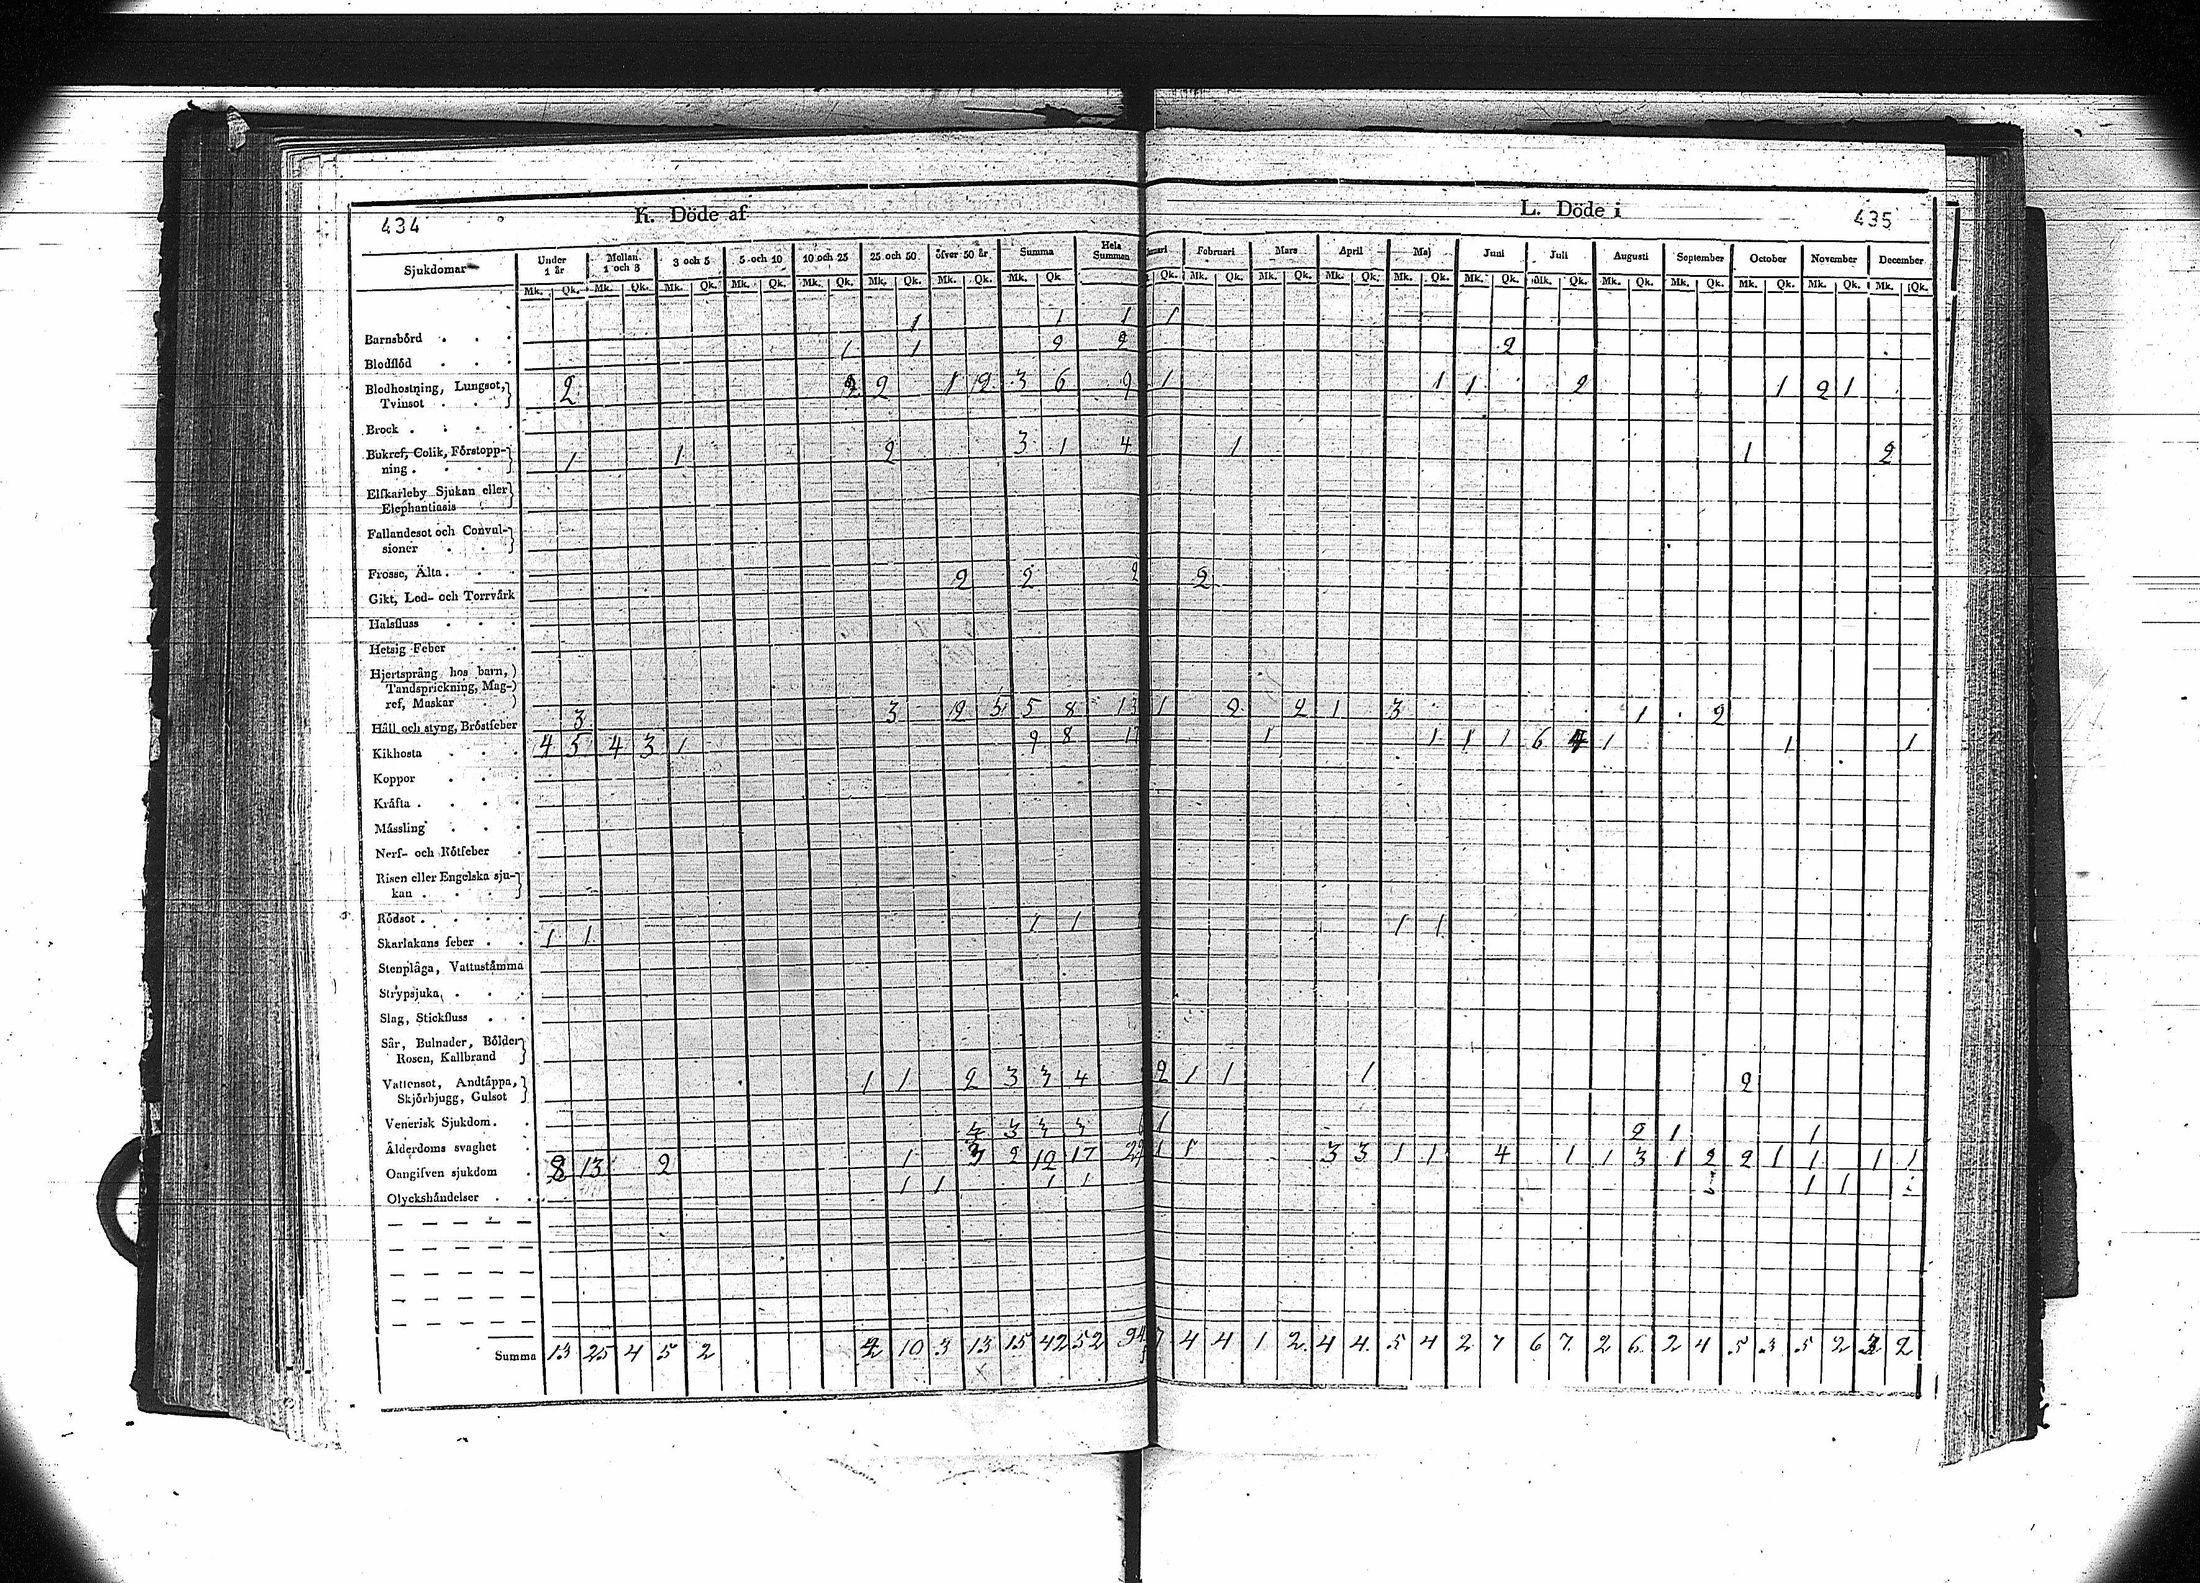 434
K. Döde af
L. Döde i
435
Sjukdomar
Under 1 år
Mellan 1 och 3
3 och 5
5 och 10
10 och 25
25 och 50
öfver 50 år
Summa
Hela Summan
Februari
Mars
April
Maj
Juni
Juli
Augusti
September
October
November
December
Mk. Qk. Mk. Qk. Mk. Qk. Mk. Qk. Mk. Qk. Mk. Qk. Mk. Qk. Mk. Qk.
Qk. Mk. Qk. Mk. Qk. Mk. Qk. Mk. Qk. Mk. Qk. Mk. Qk. Mk. Qk. Mk. Qk. Mk. Qk. Mk. Qk. Mk. Qk.
Barnsbörd 1 1 1 1
Blodflöd 1 1 2 2 2
Blodhostning, Lungsot,
Tvinsot 2 2 2 1 2 3 6 9 1 1 1 2 1 2 1
Brock
Bukref, Colik, Förstopp-
ning 1 1 2 3 1 4 1 1 2
Elfkarleby Sjukan eller
Elephantiasis
Fallandesot och Convul-
sioner
Frosse, Älta
Gikt, Led- och Torrvärk 2 2 2 2
Halsfluss
Hetsig Feber
Hjertsprång hos barn,
Tandsprickning, Mag-
ref, Maskar
Håll och styng, Bröstfeber 3 3 2 5 5 8 13 1 2 2 1 3 1 2
Kikhosta 4 5 4 3 1 9 8 17 1 1 1 1 6 4 1 1 1
Koppor
Kräfta
Mässling
Nerf- och Rötfeber
Risen eller Engelska sju-
kan
Rödsot
Skarlakans feber 1 1 1 1 1 1
Stenplåga, Vattustämma
Strypsjuka
Slag, Stickfluss
Sår, Bulnader, Bölder
Rosen, Kallbrand
Vattensot, Andtäppa,
Skjörbjugg, Gulsot 1 1 2 3 3 4 2 1 1 1 2
Venerisk Sjukdom
Ålderdoms svaghet 3 3 3 3 1 2 1 1
Oangifven sjukdom 8 13 2 1 3 2 12 17 29 1 1 3 3 1 1 4 1 1 3 1 2 2 1 1 1 1
Olyckshändelser 1 1 1 1 1 1
Summa 13 25 4 5 2 2 10 3 13 15 42 52 94 7 4 4 1 2 4 4 5 4 2 7 6 7 2 6 2 4 5 3 5 2 2 2